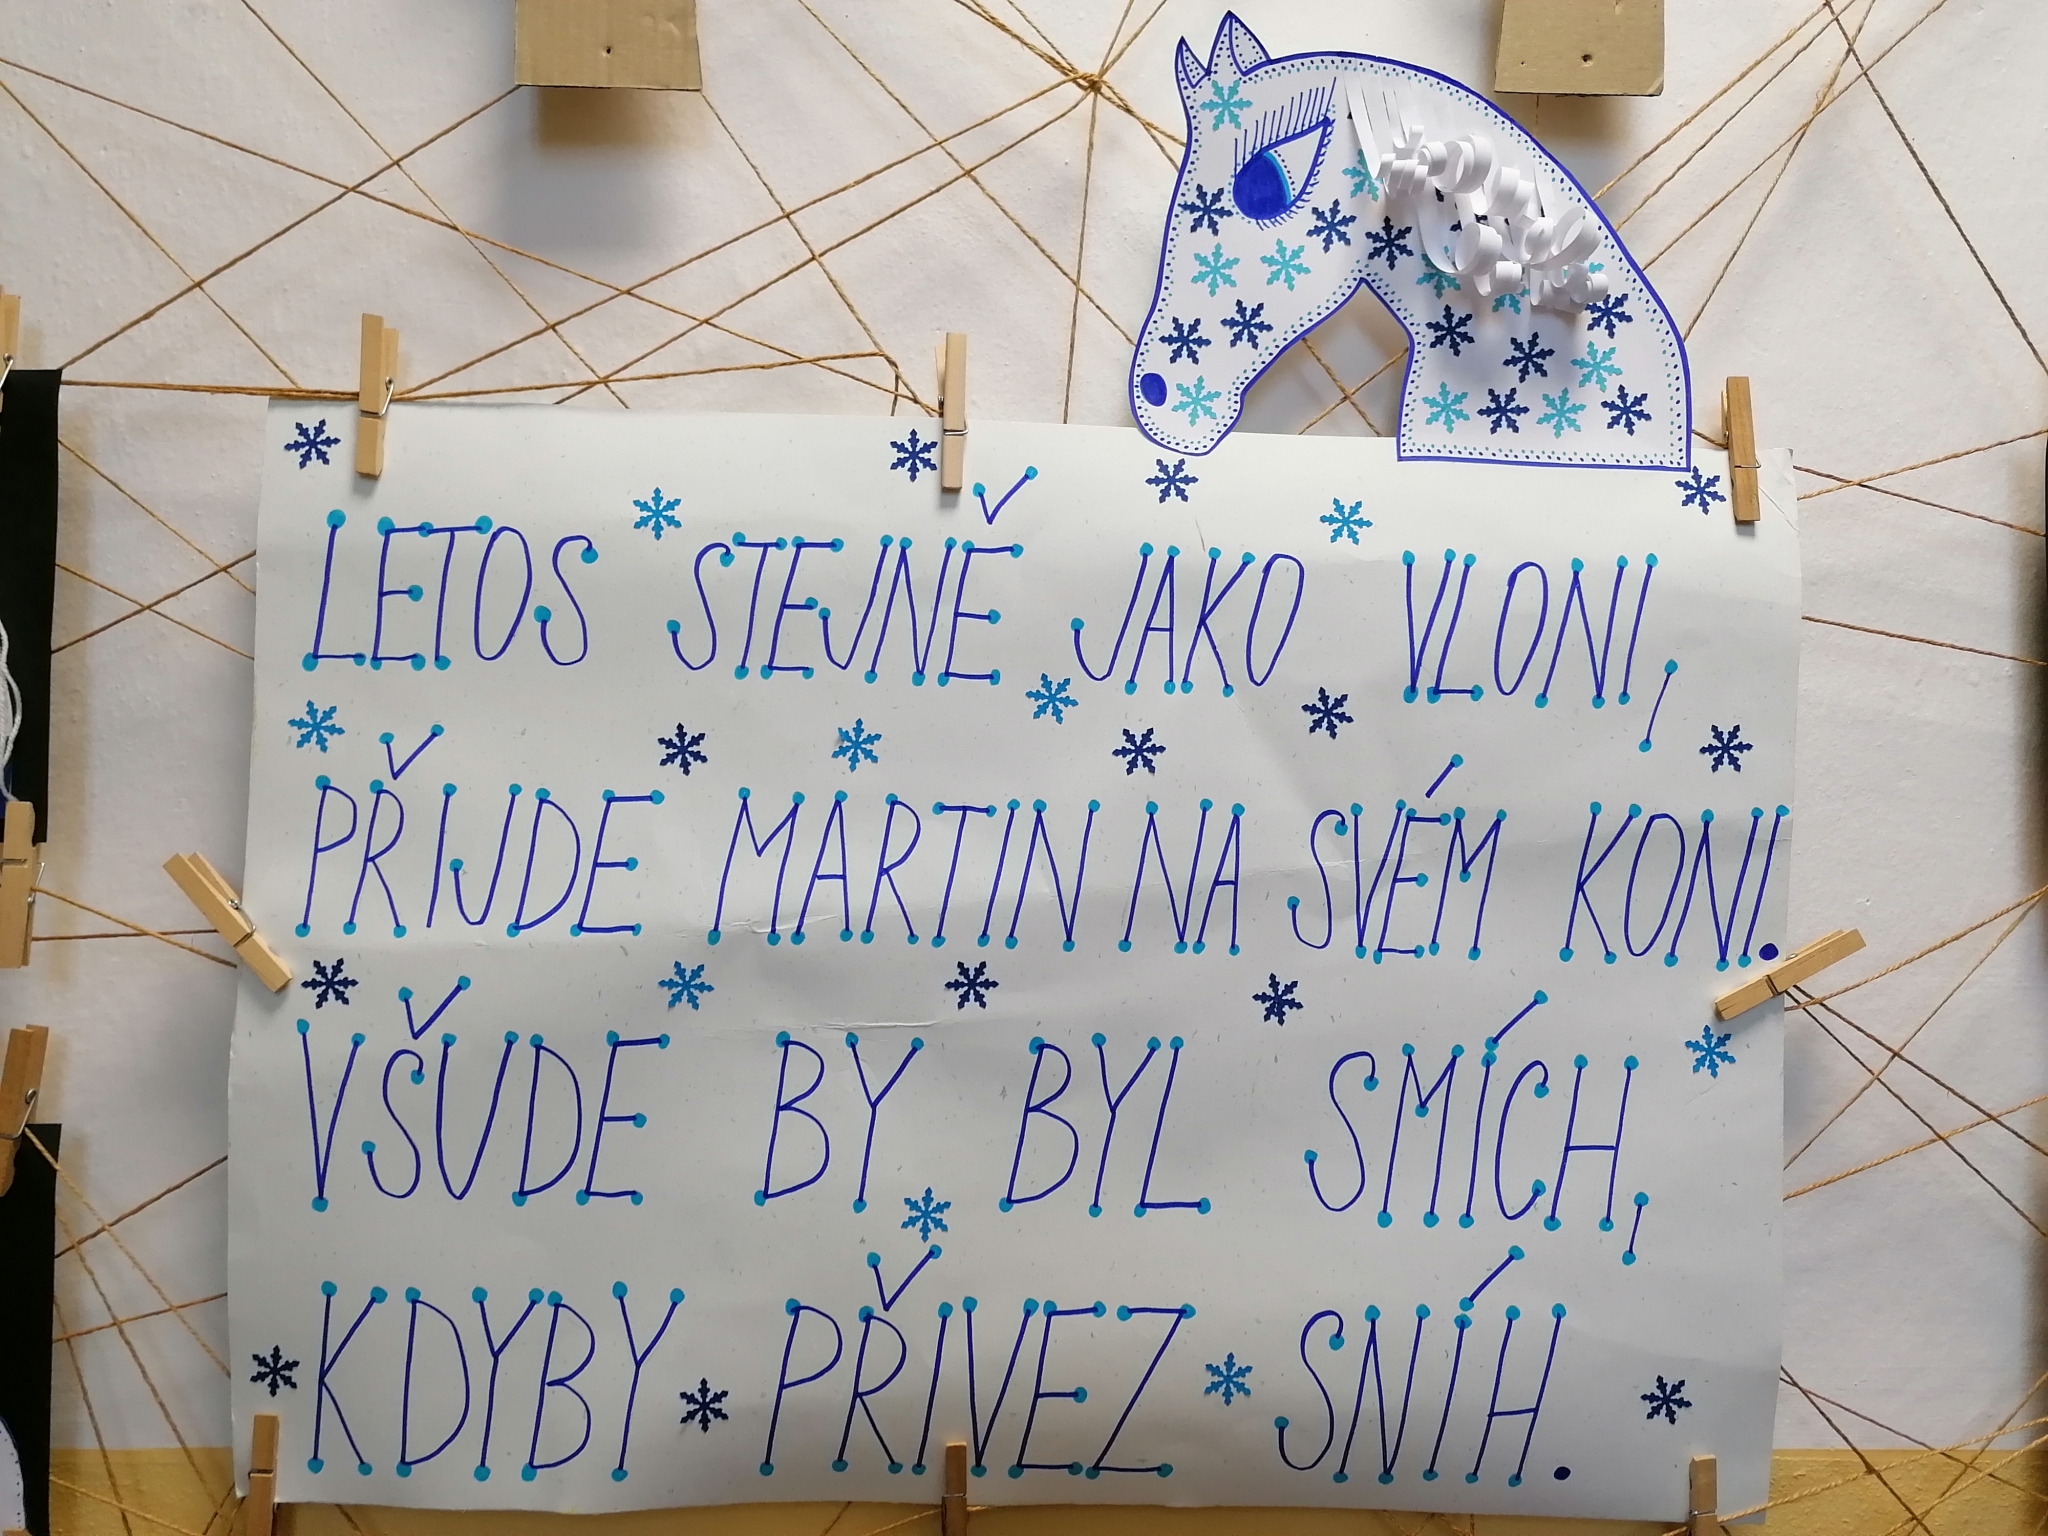 LETOS STEJNĚ JAKO VLONI,
PŘIJDE MARTIN NA SVÉM KONI.
VŠUDE BY BYL SMÍCH,
KDYBY PŘIVEZ SNÍH.